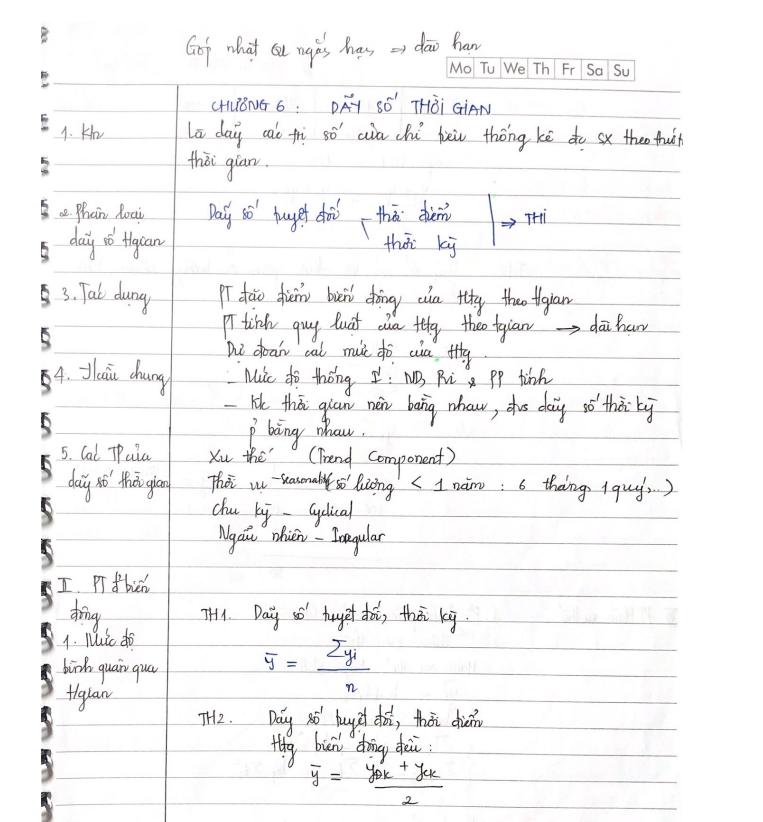 Góp nhặt QL ngắn hạn → dài hạn
Mo Tu We Th Fr Sa Su
CHƯƠNG 6 : DÃY SỐ THỜI GIAN
1. Kn
Là dãy các trị số của chỉ tiêu thống kê đc SX theo thứ tự
thời gian.
2. Phân loại
dãy số tgian
Dãy số tuyệt đối - thời điểm
thời kỳ
⇒ THI
3. Tác dụng
PT đặc điểm biến động của httg theo tgian
PT tính quy luật của httg theo tgian → dài hạn
Dự đoán các mức độ của httg.
4. Yêu cầu chung
- Mức độ thống I': ND, Pvi & PP tính
- Kk thời gian nên bằng nhau, đvs dãy số thời kỳ
p' bằng nhau.
5. Các TP của
dãy số thời gian
Xu thế (Trend Component)
Thời vụ - Seasonality (số lượng < 1 năm : 6 tháng, 1 quý,...)
Chu kỳ - Cyclical
Ngẫu nhiên - Irregular
II. PT đ² biến
động
1. Mức độ
bình quân qua
t/gian
TH1. Dãy số tuyệt đối, thời kỳ.
ȳ = Σyi / n
TH2. Dãy số tuyệt đối, thời điểm
httg biến động đều :
ȳ = (yĐK + yCK) / 2